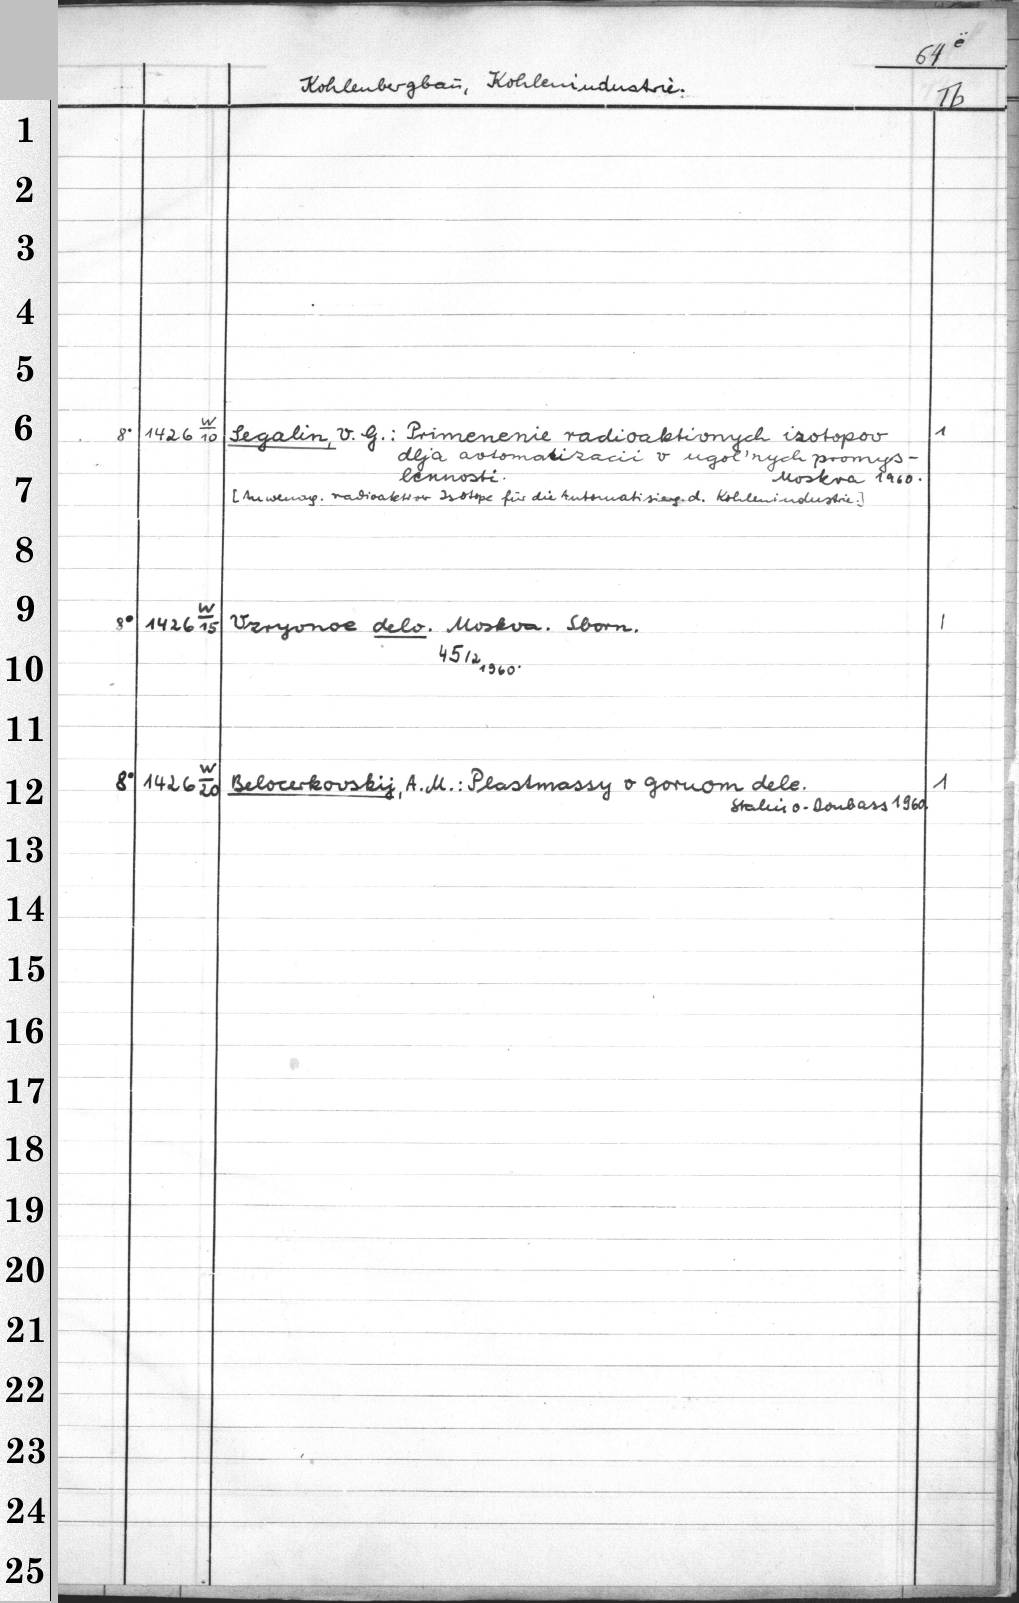 64 ë
Kohlenbergbaū, Kohlenindustrie.
Tb
1
2
3
4
5
6
8° 1426 W/10 Segalin, V. G.: Primenenie radioaktivnych izotopov 1
dlja avtomatizacii v ugol'nych promyš-
lennosti. Moskva 1960.
7
[Anwendg. radioaktiver Isotope für die Automatisierg. d. Kohlenindustrie.]
8
9
8° 1426 W/15 Vzryvnoe delo. Moskva. Sborn. 1
45/2 1960.
10
11
12
8° 1426 W/20 Belocerkovskij, A. M.: Plastmassy v gornom dele. 1
Stalino-Donbass 1960.
13
14
15
16
17
18
19
20
21
22
23
24
25